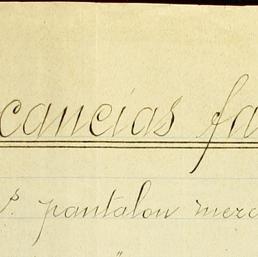 cancias fa
s. pantalon merc
"